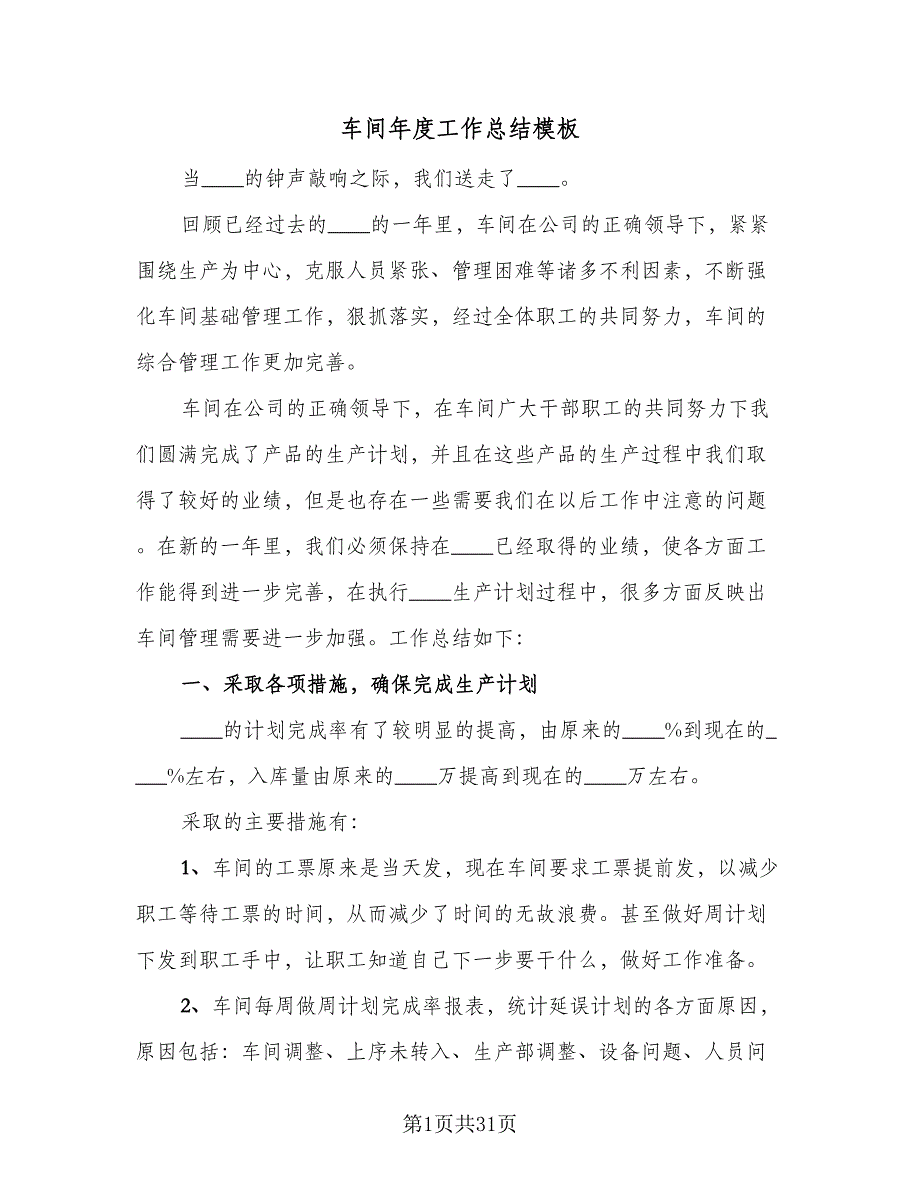 车间年度工作总结模板
当____的钟声敲响之际，我们送走了____。
回顾已经过去的____的一年里，车间在公司的正确领导下，紧紧
围绕生产为中心，克服人员紧张、管理困难等诸多不利因素，不断强
化车间基础管理工作，狠抓落实，经过全体职工的共同努力，车间的
综合管理工作更加完善。
车间在公司的正确领导下，在车间广大干部职工的共同努力下我
们圆满完成了产品的生产计划，并且在这些产品的生产过程中我们取
得了较好的业绩，但是也存在一些需要我们在以后工作中注意的问题
。在新的一年里，我们必须保持在____已经取得的业绩，使各方面工
作能得到进一步完善，在执行____生产计划过程中，很多方面反映出
车间管理需要进一步加强。工作总结如下：
一、采取各项措施，确保完成生产计划
____的计划完成率有了较明显的提高，由原来的____%到现在的_
___%左右，入库量由原来的____万提高到现在的____万左右。
采取的主要措施有：
1、车间的工票原来是当天发，现在车间要求工票提前发，以减少
职工等待工票的时间，从而减少了时间的无故浪费。甚至做好周计划
下发到职工手中，让职工知道自己下一步要干什么，做好工作准备。
2、车间每周做周计划完成率报表，统计延误计划的各方面原因，
原因包括：车间调整、上序未转入、生产部调整、设备问题、人员问
第1页共31页